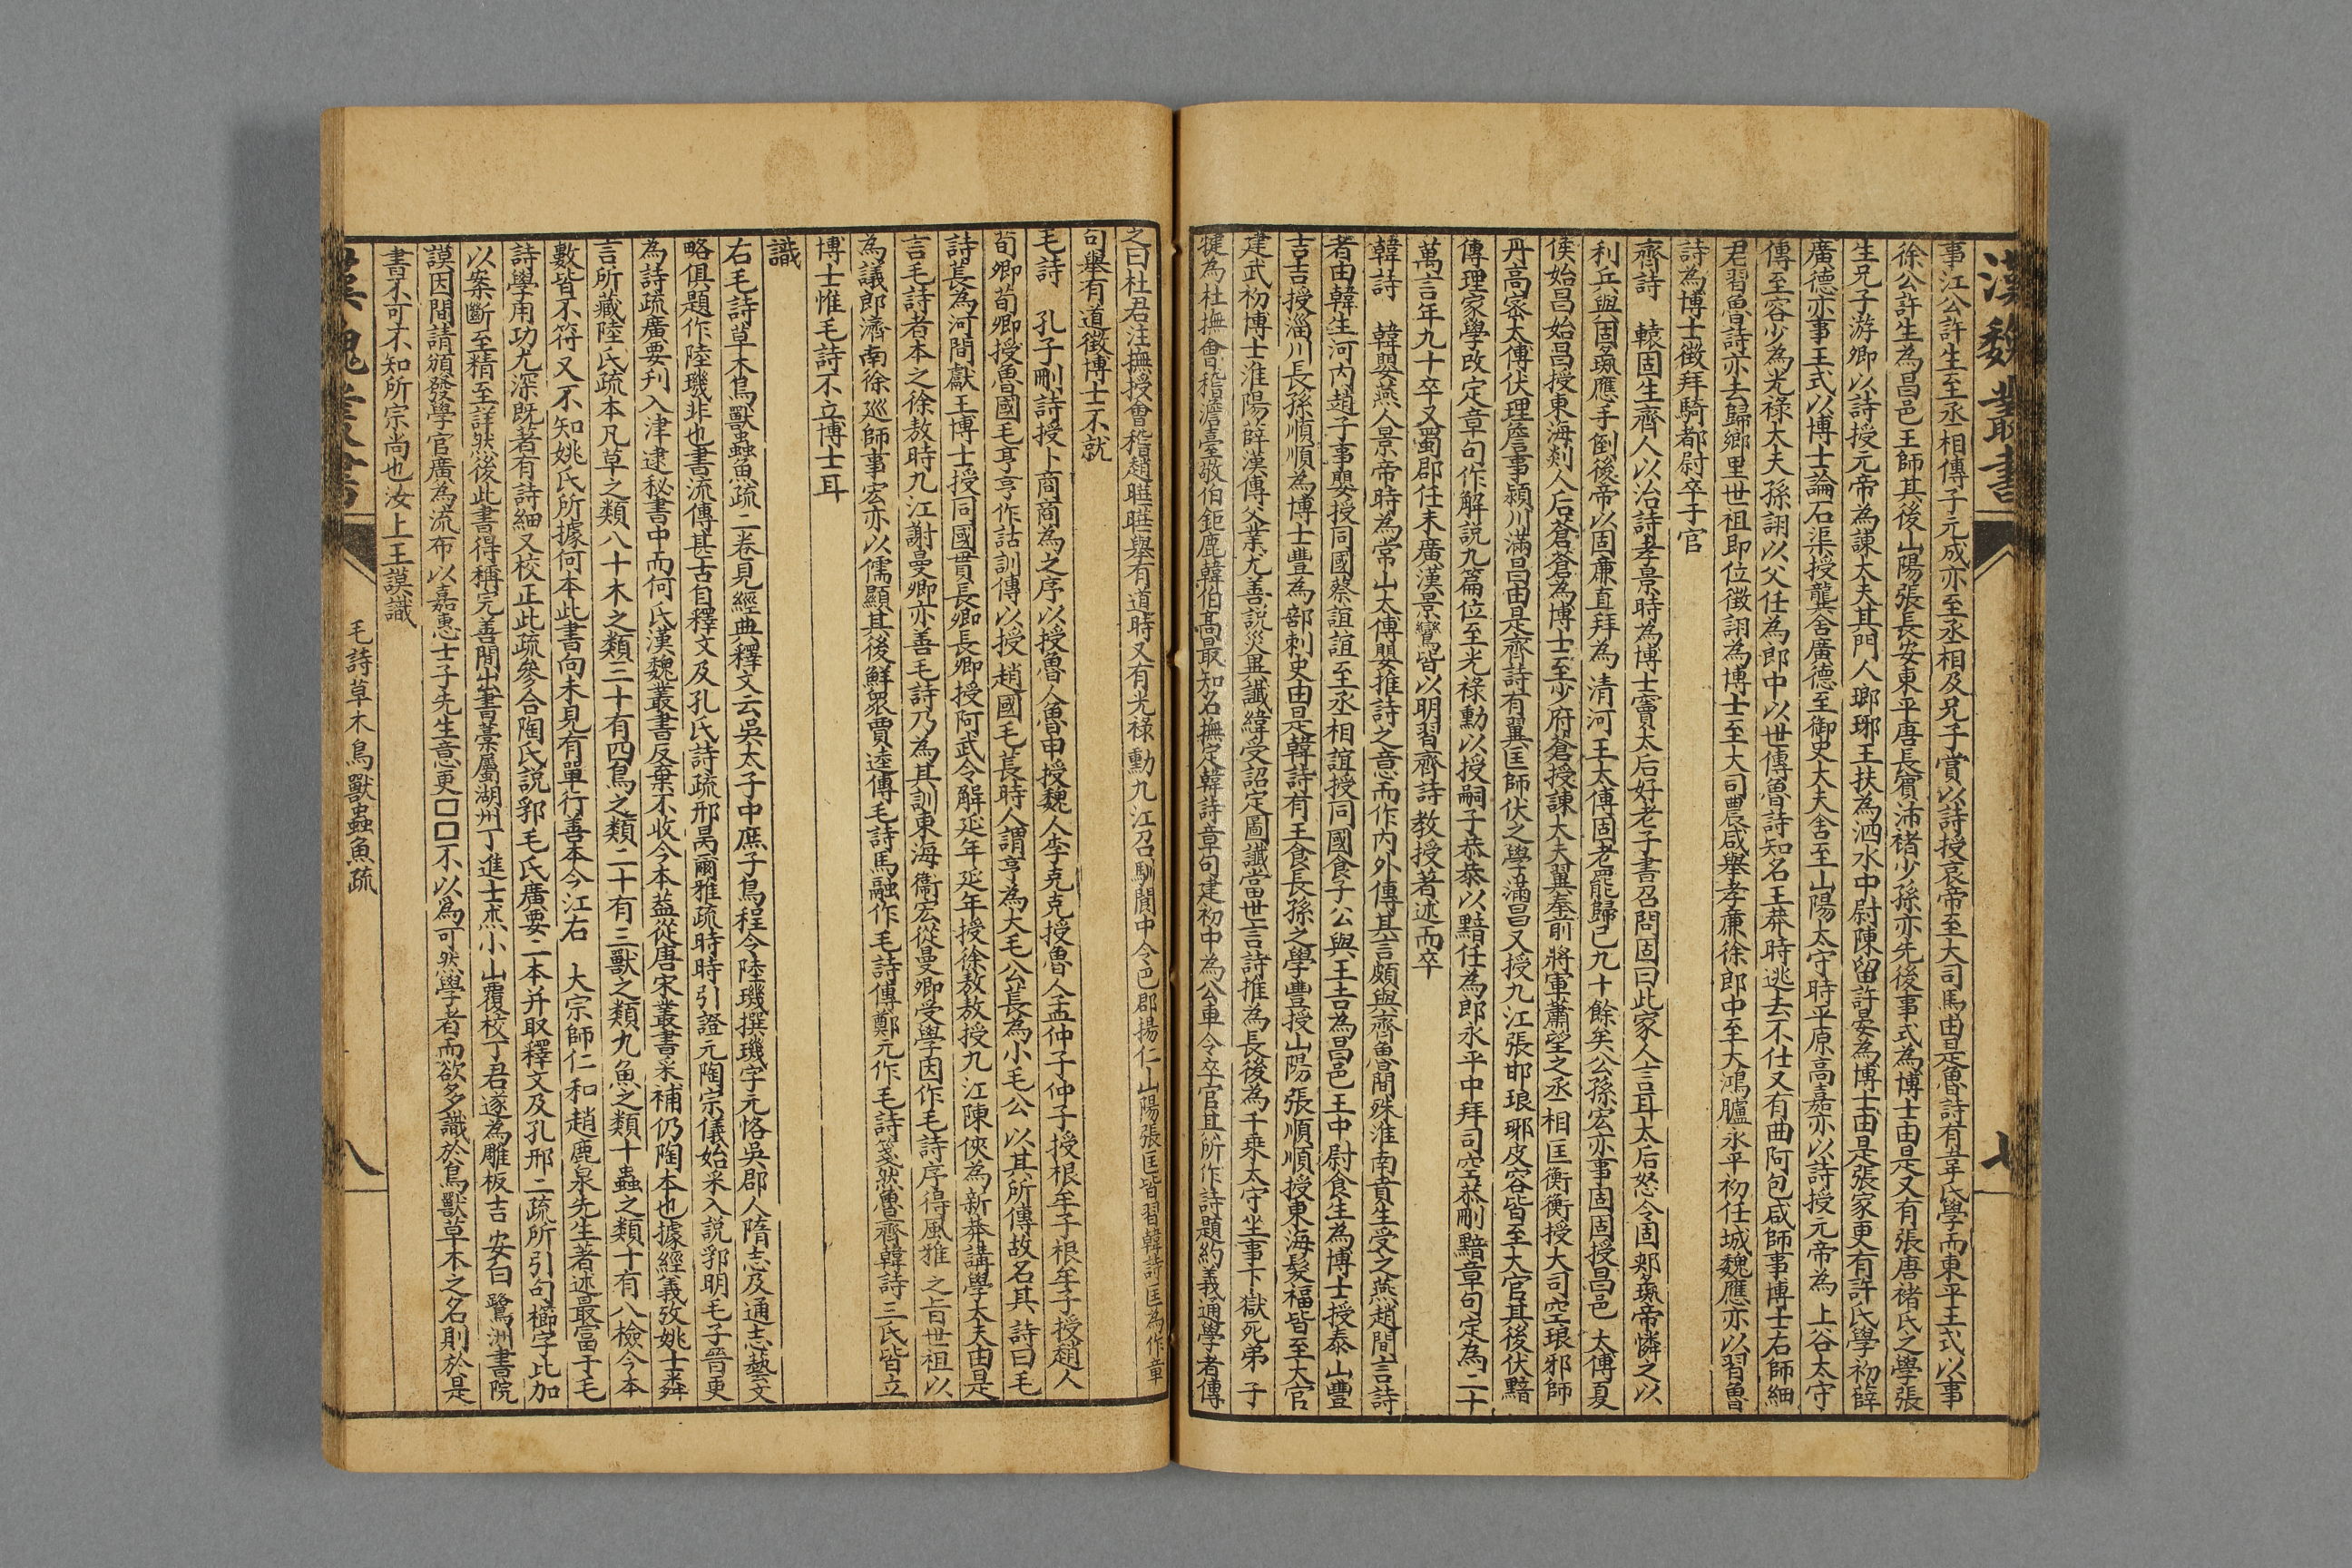 漢魏叢書
七
事江公許生至丞相傳子元成亦至丞相及兄子賞以詩授哀帝至大司馬由是魯詩有韋氏學而東平王式以事
徐公許生為昌邑王師其後山陽張長安東平唐長賓沛褚少孫亦先後事式為博士由是又有張唐褚氏之學張
生兄子游卿以詩授元帝為諫大夫其門人瑯琊王扶為泗水中尉陳留許晏為博士由是張家更有許氏學初薛
廣德亦事王式以博士論石渠授龔舍廣德至御史大夫舍至山陽太守時平原高嘉亦以詩授元帝為上谷太守
傳至容少為光祿大夫孫詡以父任為郎中以世傳魯詩知名王莽時逃去不仕又有曲阿包咸師事博士右師細
君習魯詩亦去歸鄉里世祖即位徵詡為博士至大司農咸舉孝廉徐郎中至大鴻臚永平初任城魏應亦以習魯
詩為博士徵拜騎都尉卒于官
齊詩　轅固生齊人以治詩孝景時為博士竇太后好老子書召問固曰此家人言耳太后怒令固刺彘帝憐之以
利兵與固彘應手倒後帝以固廉直拜為清河王太傅固老罷歸已九十餘矣公孫宏亦事固固授昌邑太傅夏
侯始昌始昌授東海剡人后蒼蒼為博士至少府蒼授諫大夫翼奉前將軍蕭望之丞相匡衡衡授大司空琅邪師
丹高密太傅伏理詹事潁川滿昌由是齊詩有翼匡師伏之學滿昌又授九江張邯琅琊皮容皆至大官其後伏黯
傳理家學改定章句作解説九篇位至光祿勳以授嗣子恭恭以黯任為郎永平中拜司空恭刪黯章句定為二十
萬言年九十卒又蜀郡任末廣漢景鸞皆以明習齊詩教授著述而卒
韓詩　韓嬰燕人景帝時為常山太傅嬰推詩之意而作內外傳其言頗與齊魯間殊淮南賁生受之燕趙間言詩
者由韓生河內趙子事嬰授同國蔡誼誼至丞相誼授同國食子公與王吉為昌邑王中尉食生為博士授泰山豐
吉吉授淄川長孫順順為博士豐為部刺史由是韓詩有王食長孫之學豐授山陽張順順授東海髮福皆至大官
建武初博士淮陽薛漢傳父業尤善説災異讖緯受詔定圖讖當世言詩推為長後為千乘太守坐事下獄死弟子
犍為杜撫會稽澹臺敬伯鉅鹿韓伯高最知名撫定韓詩章句建初中為公車令卒官且所作詩題約義通學者傳
之曰杜君注撫授會稽趙瞱瞱舉有道時又有光祿勳九江召馴閬中令巴郡揚仁山陽張匡皆習韓詩匡為作章
句舉有道徵博士不就
毛詩　孔子刪詩授卜商商為之序以授魯人曾申授魏人李克克授魯人孟仲子仲子授根牟子根牟子授趙人
荀卿荀卿授魯國毛亨亨作詁訓傳以授趙國毛萇時人謂亨為大毛公萇為小毛公以其所傳故名其詩曰毛
詩萇為河間獻王博士授同國貫長卿長卿授阿武令解延年延年授徐敖敖授九江陳俠為新莽講學大夫由是
言毛詩者本之徐敖時九江謝曼卿亦善毛詩乃為其訓東海衞宏從曼卿受學因作毛詩序得風雅之旨世祖以
為議郎濟南徐廵師事宏亦以儒顯其後鄭眾賈逵傳毛詩馬融作毛詩傳鄭元作毛詩箋然魯齊韓詩三氏皆立
博士惟毛詩不立博士耳
識
右毛詩草木鳥獸蟲魚疏二卷見經典釋文云吳太子中庶子烏程令陸璣撰璣字元恪吳郡人隋志及通志藝文
略俱題作陸璣非也書流傳甚古自釋文及孔氏詩疏邢昺爾雅疏時時引證元陶宗儀始采入説郛明毛子晉更
為詩疏廣要刋入津逮秘書中而何氏漢魏叢書反棄不收今本蓋從唐宋叢書采補仍陶本也據經義攷姚士粦
言所藏陸氏疏本凡草之類八十木之類三十有四鳥之類二十有三獸之類九魚之類十蟲之類十有八檢今本
數皆不符又不知姚氏所據何本此書向未見有單行善本今江右　大宗師仁和趙鹿泉先生著述最富于毛
詩學用功尤深既著有詩細又校正此疏參合陶氏説郛毛氏廣要二本并取釋文及孔邢二疏所引句櫛字比加
以案斷至精至詳然後此書得稱完善間出書藁屬湖州丁進士杰小山覆校丁君遂為雕板吉安白鷺洲書院
謨因間請頒發學官廣為流布以嘉惠士子先生意更□□不以為可然學者而欲多識於鳥獸草木之名則於是
書不可不知所宗尚也汝上王謨識
漢魏叢書
毛詩草木鳥獸蟲魚疏
八